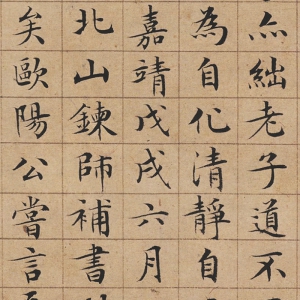 亦絀老子道不
為自化清靜自
嘉靖戊戌六月
北山鍊師補書
矣歐陽公嘗言